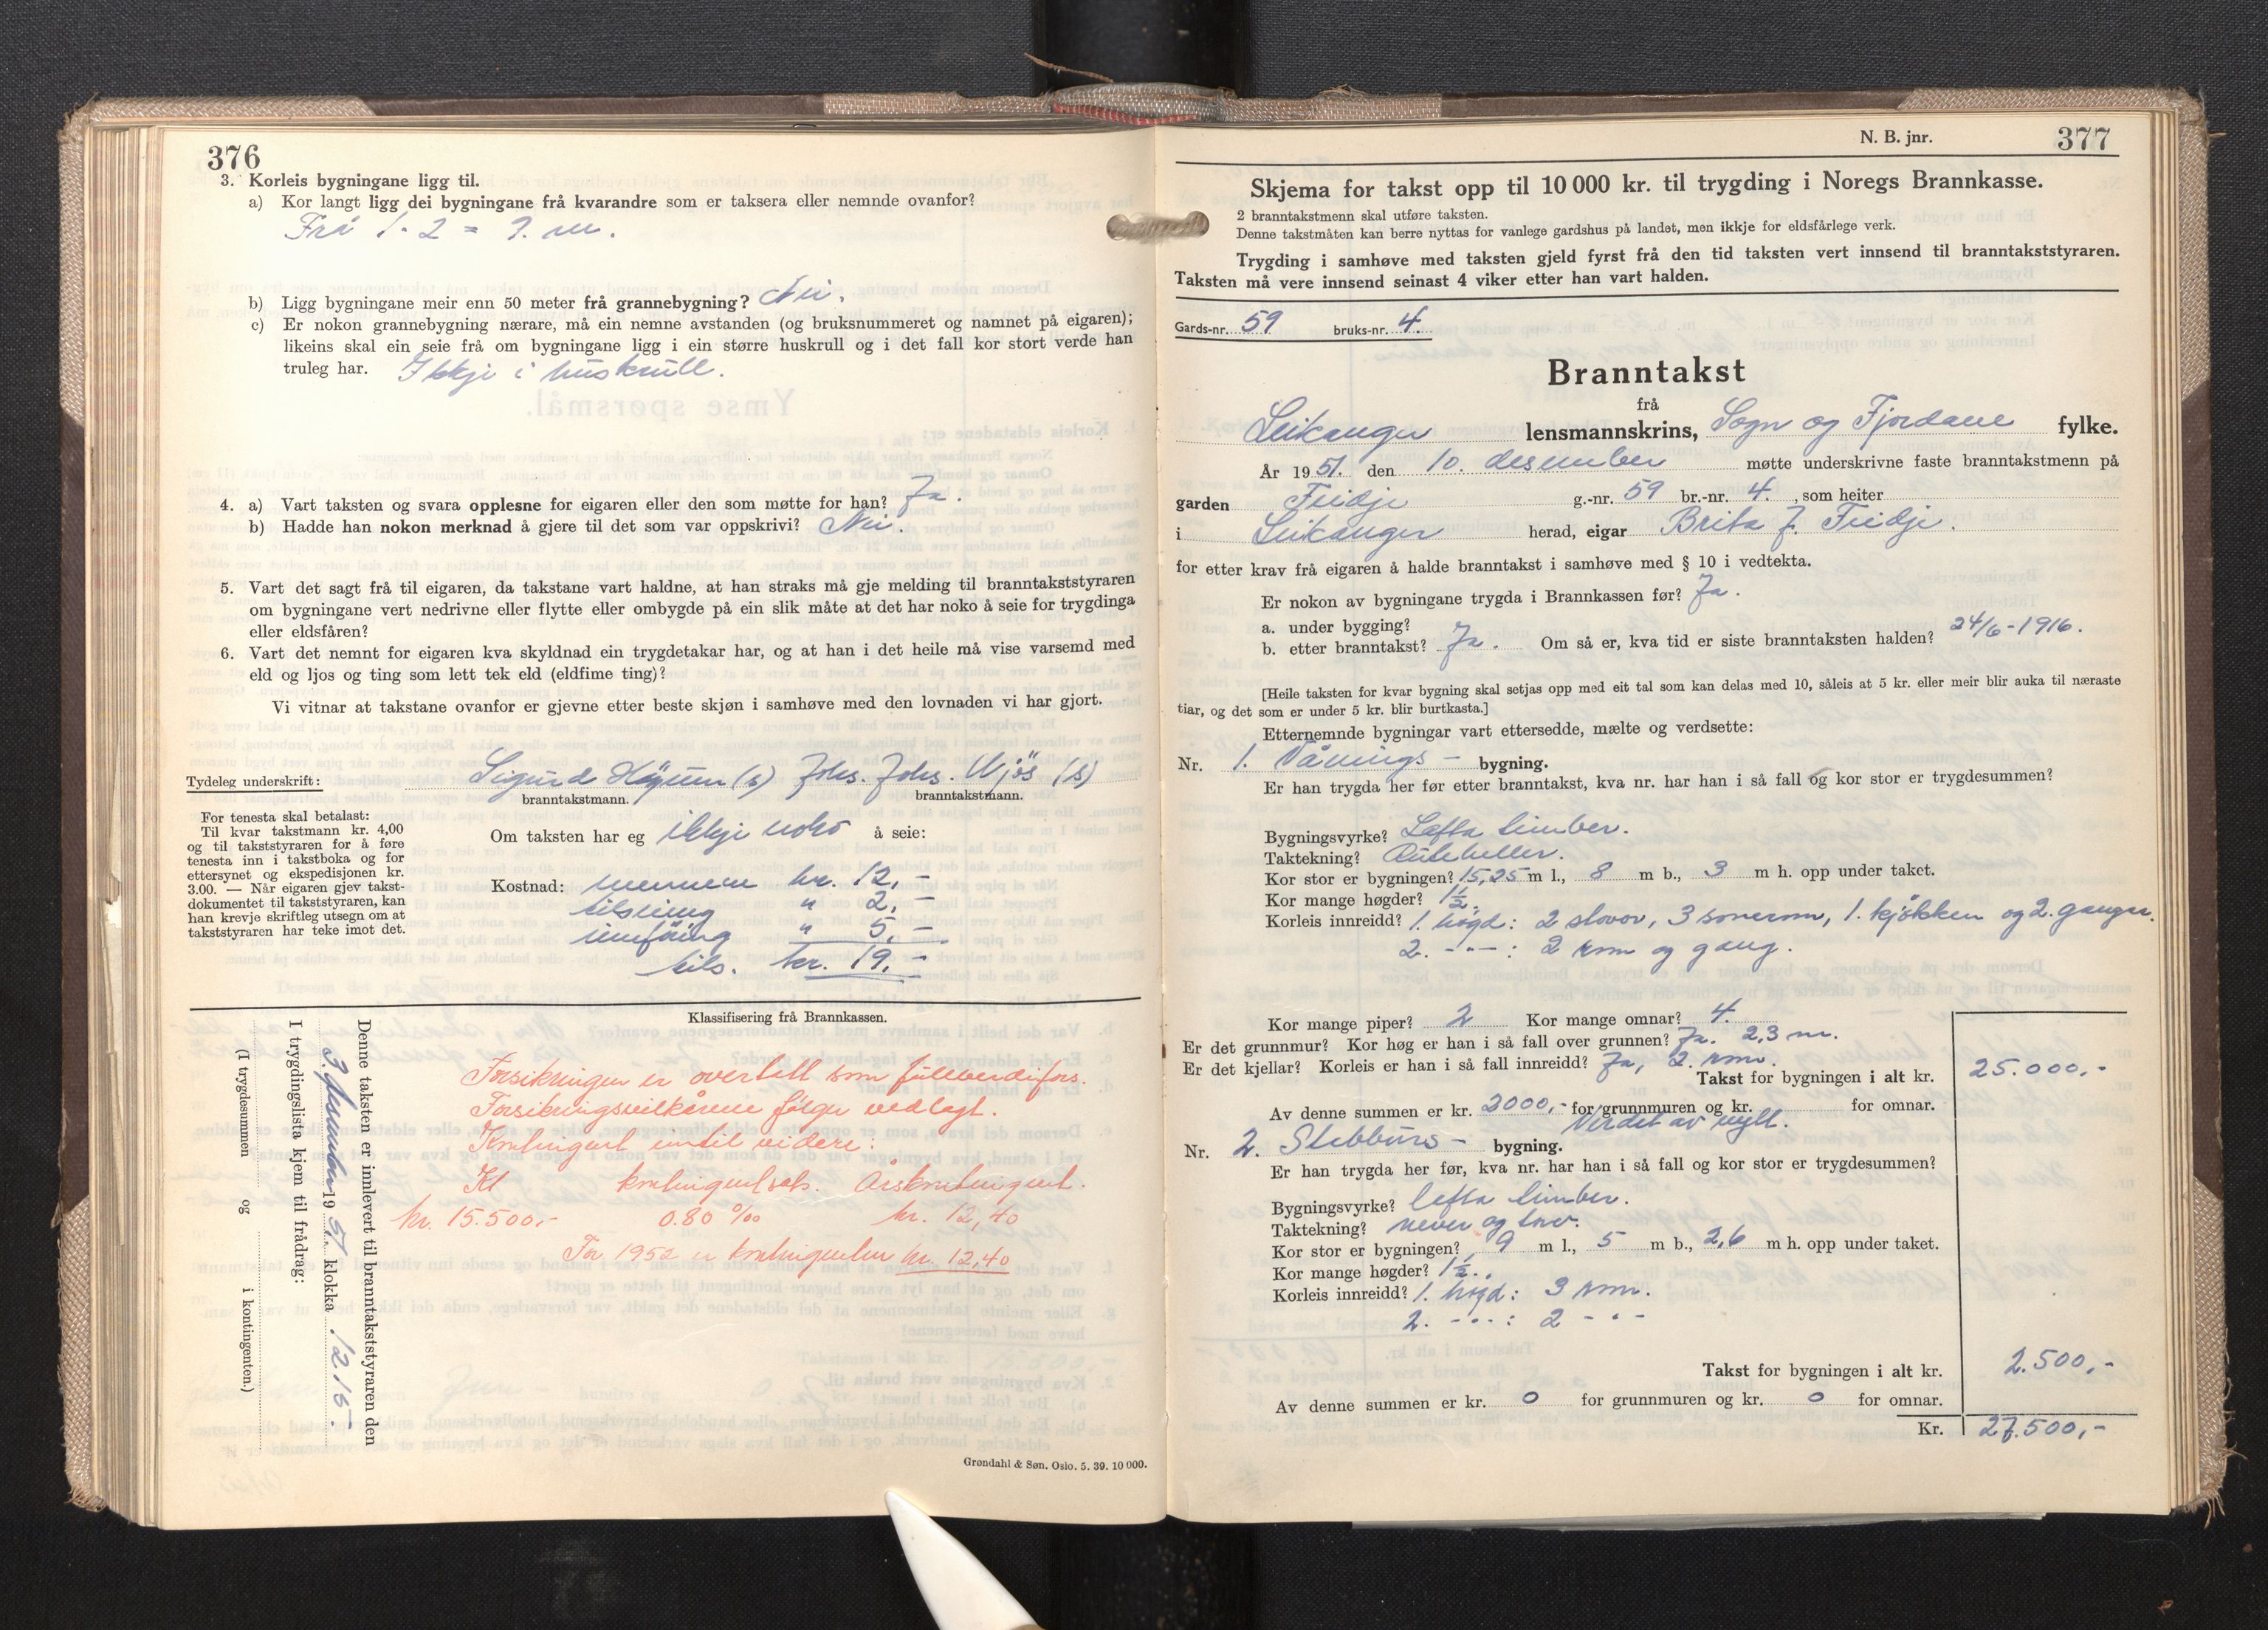 376
3. Korleis bygningane ligg til.
a) Kor langt ligg dei bygningane frå kvarandre som er taksera eller nemnde ovanfor?
Frå 1-2 = 9. m.
b) Ligg bygningane meir enn 50 meter frå grannebygning? Nei.
c) Er nokon grannebygning nærare, må ein nemne avstanden (og bruksnummeret og namnet på eigaren);
likeins skal ein seie frå om bygningane ligg i ein større huskrull og i det fall kor stort verde han
truleg har. Ikkje i huskrull.
4. a) Vart taksten og svara opplesne for eigaren eller den som møtte for han? Ja.
b) Hadde han nokon merknad å gjere til det som var oppskrivi? Nei.
5. Vart det sagt frå til eigaren, da takstane vart haldne, at han straks må gje melding til branntakststyraren
om bygningane vert nedrivne eller flytte eller ombygde på ein slik måte at det har noko å seie for trygdinga
eller eldsfåren?
6. Vart det nemnt for eigaren kva skyldnad ein trygdetakar har, og at han i det heile må vise varsemd med
eld og ljos og ting som lett tek eld (eldfime ting)?
Vi vitnar at takstane ovanfor er gjevne etter beste skjøn i samhøve med den lovnaden vi har gjort.
Tydeleg underskrift: Sigurd (s) Johs. Johs. Njøs (s)
branntakstmann. branntakstmann.
For tenesta skal betalast:
Til kvar takstmann kr. 4,00
og til takststyraren for å føre
tenesta inn i takstboka og for
ettersynet og ekspedisjonen kr.
3.00. — Når eigaren gjev takst-
dokumentet til takststyraren, kan
han krevje skriftleg utsegn om at
takststyraren har teke imot det.
Om taksten har eg ikkje noko å seie:
Kostnad: mennene kr. 12,-
tilsening " 2,-
innføring " 5,-
tils. kr. 19,-
Denne taksten er innlevert til branntakststyraren den
3. 19 51. klokka 12 15.
I trygdingslista kjem til frådrag:
(I trygdesummen og i kontingenten.)
Klassifisering frå Brannkassen.
Forsikringen er overtatt som fullverdifors.
Forsikringsvilkårene følger vedlagt.
Kontingent inntil videre:
Kl kontingentsats. Årskontingent.
kr. 15.500,- 0.80 ‰ kr. 12,40
For 1952 er kontingenten kr. 12,40
Grøndahl & Søn. Oslo. 5. 39. 10 000.
N. B. jnr. 377
Skjema for takst opp til 10 000 kr. til trygding i Noregs Brannkasse.
2 branntakstmenn skal utføre taksten.
Denne takstmåten kan berre nyttas for vanlege gardshus på landet, men ikkje for eldsfårlege verk.
Trygding i samhøve med taksten gjeld fyrst frå den tid taksten vert innsend til branntakststyraren.
Taksten må vere innsend seinast 4 viker etter han vart halden.
Gards-nr. 59 bruks-nr. 4.
Branntakst
frå
Leikanger lensmannskrins, Sogn og Fjordane fylke.
År 19 51. den 10. desember møtte underskrivne faste branntakstmenn på
garden Feidje g.-nr. 59 br.-nr. 4. , som heiter
i Leikanger herad, eigar Brita J. Feidje.
for etter krav frå eigaren å halde branntakst i samhøve med § 10 i vedtekta.
Er nokon av bygningane trygda i Brannkassen før? Ja.
a. under bygging?
b. etter branntakst? Ja. Om så er, kva tid er siste branntaksten halden? 24/6-1916.
[Heile taksten for kvar bygning skal setjas opp med eit tal som kan delas med 10, såleis at 5 kr. eller meir blir auka til næraste
tiar, og det som er under 5 kr. blir burtkasta.]
Etternemnde bygningar vart ettersedde, mælte og verdsette:
Nr. 1. Vånings- bygning.
Er han trygda her før etter branntakst, kva nr. har han i så fall og kor stor er trygdesummen?
Bygningsvyrke? Lefta timber.
Taktekning? Ruteheller.
Kor stor er bygningen? 15,25 m l., 8 m b., 3 m h. opp under taket.
Kor mange høgder? 1½.
Korleis innreidd? 1. høgd: 2 stovor, 3 soverom, 1. kjøkken og 2. ganger.
2. -"-: 2 rom og gang.
Kor mange piper? 2 Kor mange omnar? 4.
Er det grunnmur? Kor høg er han i så fall over grunnen? Ja. 2,3 m.
Er det kjellar? Korleis er han i så fall innreidd? Ja, 2. rom.
Takst for bygningen i alt kr. 25.000,-
Av denne summen er kr. 2000,- for grunnmuren og kr. for omnar.
Verdet av nytt.
Nr. 2. Stabburs- bygning.
Er han trygda her før, kva nr. har han i så fall og kor stor er trygdesummen?
Bygningsvyrke? lefta timber.
Taktekning? never og torv.
Kor stor er bygningen? 9 m l., 5 m b., 2,6 m h. opp under taket.
Kor mange høgder? 1½.
Korleis innreidd? 1. høgd: 3 rom.
2. -"-: 2 -"-
Takst for bygningen i alt kr. 2.500,-
Av denne summen er kr. 0 for grunnmuren og kr. 0 for omnar.
Kr. 27.500,-